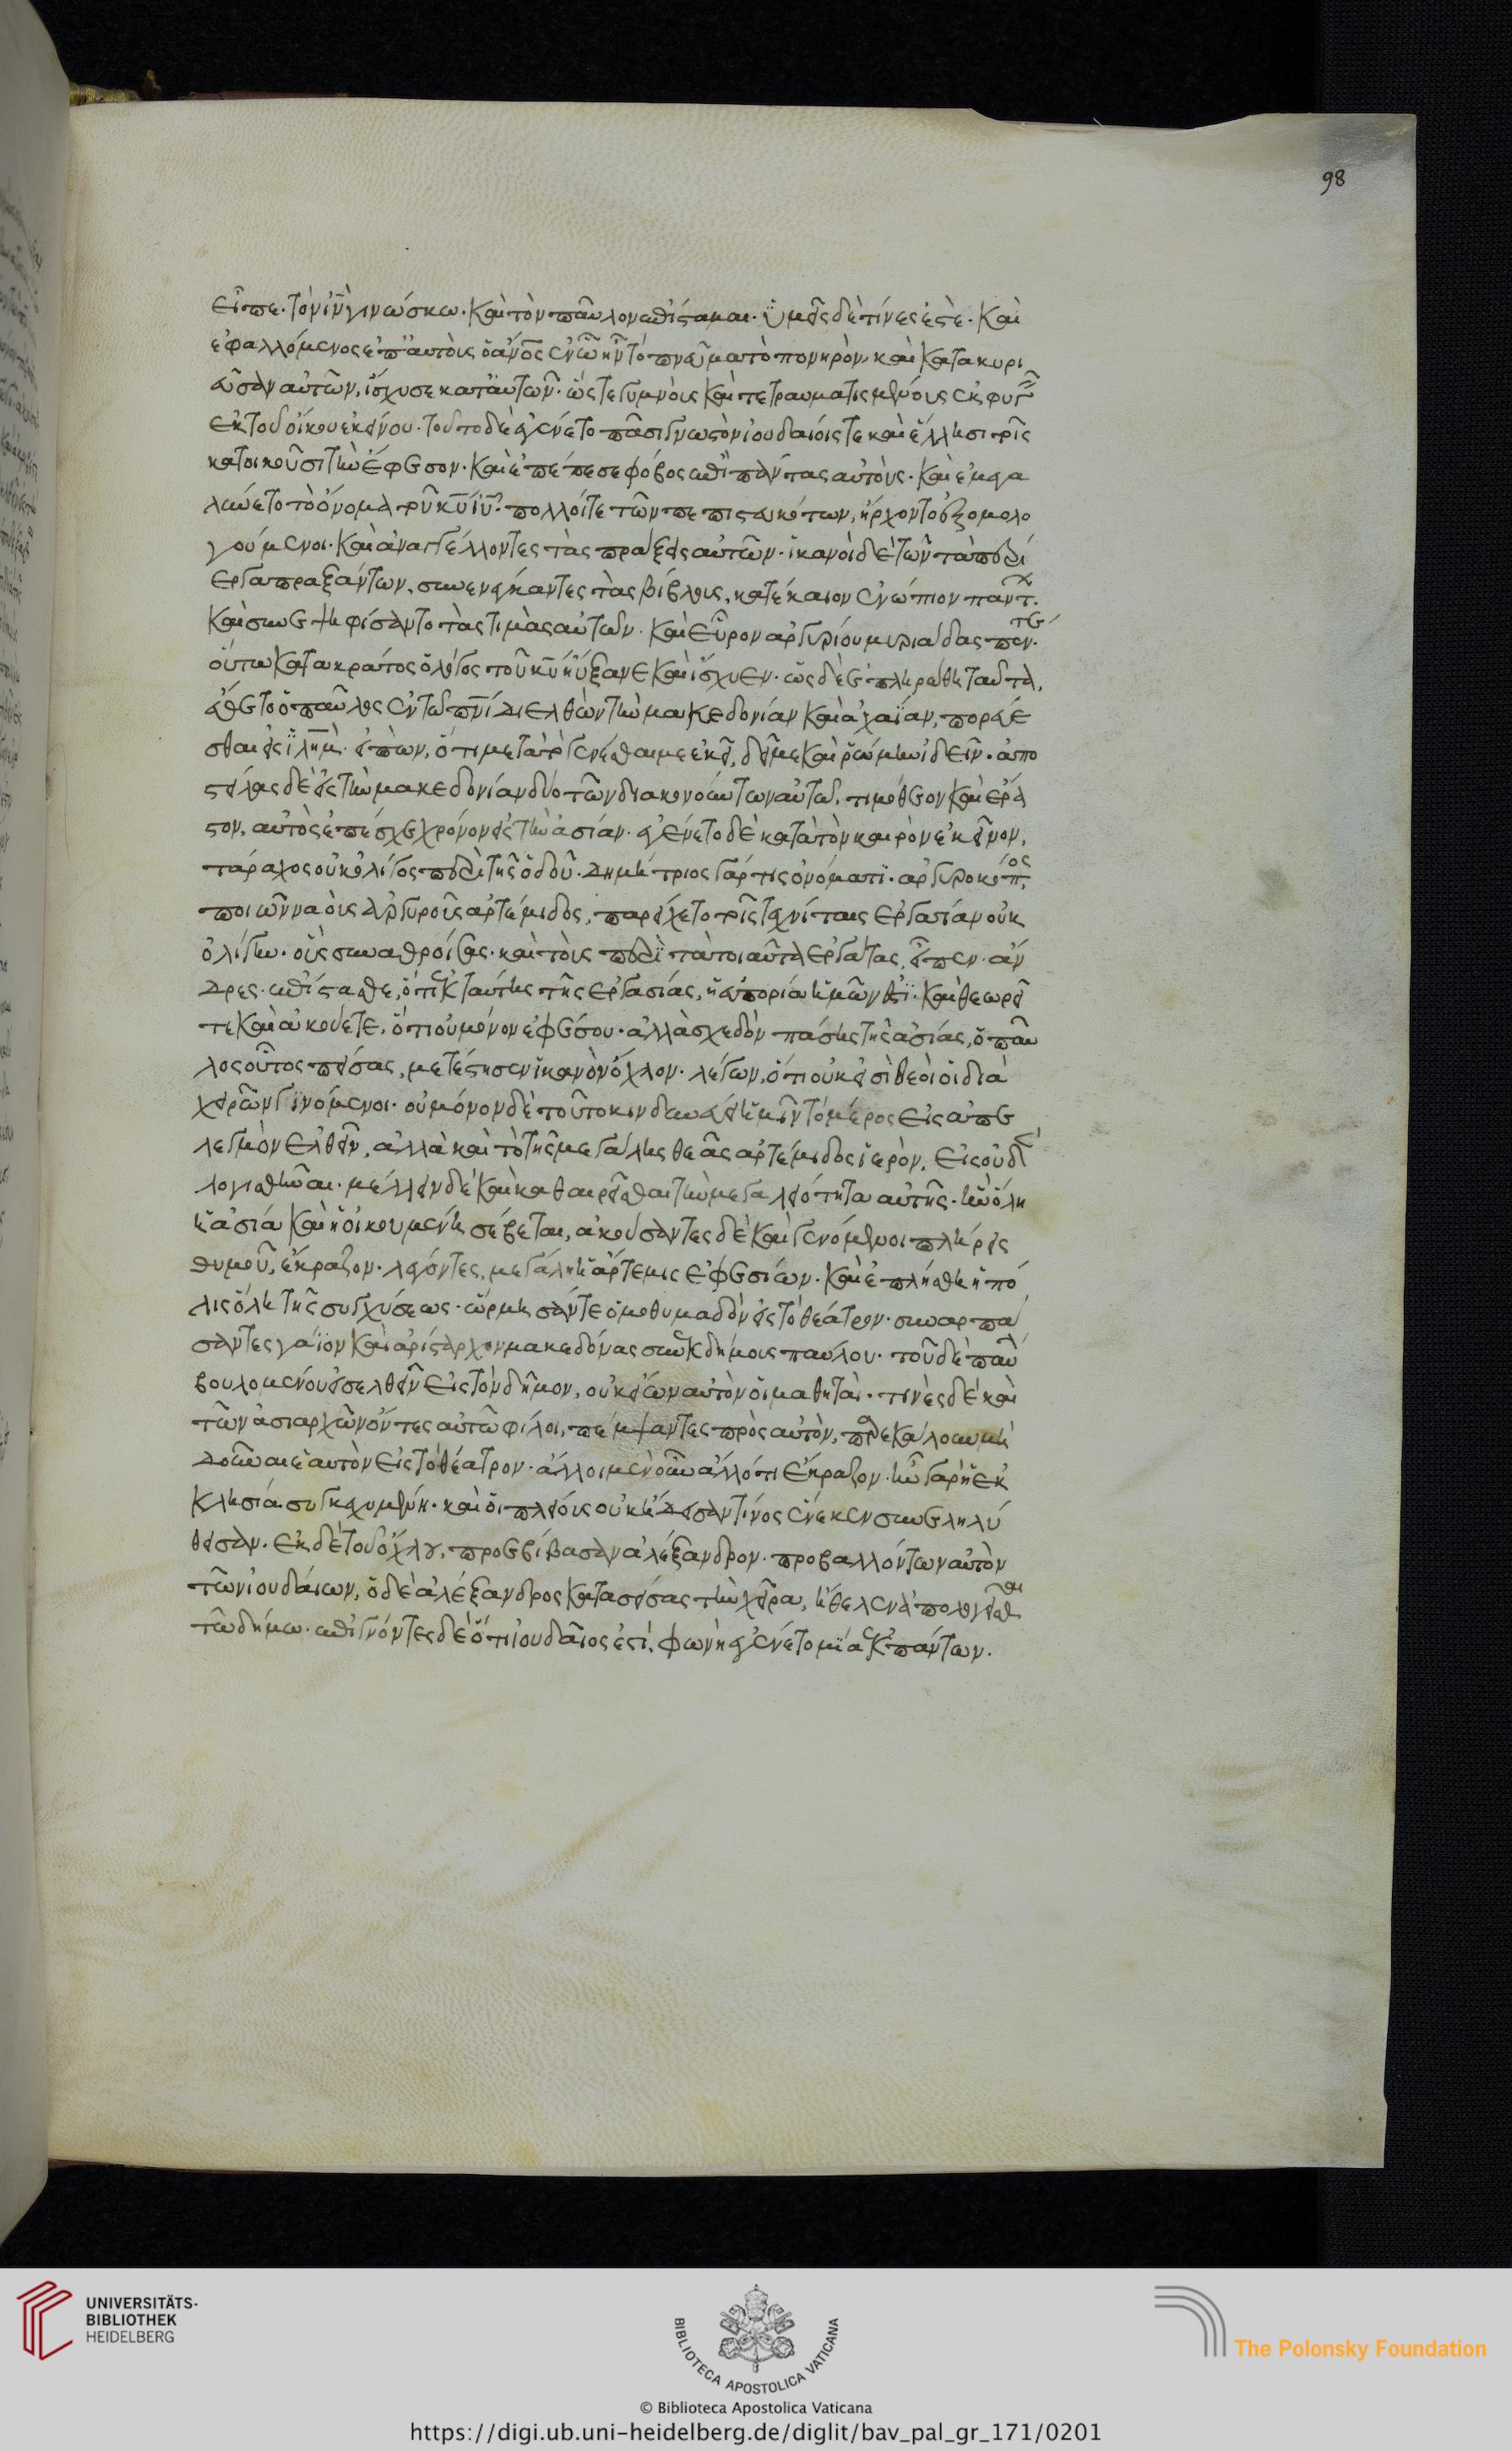 98
εἶπε· τὸν ἰν̅ γινώσκω· καὶ τὸν παῦλον ἐπίσταμαι· ὑμεῖς δὲ τίνες ἐστέ· καὶ
ἐφαλλόμενος ἐπ' αὐτοὺς ὁ ἄνο̅ς ἐν ὧ ἦν τὸ πνεῦμα τὸ πονηρὸν, καὶ κατακυρι
εῦσαν αὐτῶν, ἴσχυσε κατ' αὐτῶν· ὥστε γυμνοὺς καὶ τετραυματισμένους ἐκφυγεῖν
ἐκ τοῦ οἴκου ἐκείνου· τοῦτο δὲ ἐγένετο πᾶσι γνωστὸν ἰουδαίοις τε καὶ ἕλλησι τοῖς
κατοικοῦσι τὴν ἔφεσον· καὶ ἐπέπεσε φόβος ἐπὶ πάντας αὐτούς· καὶ ἐμεγα
λύνετο τὸ ὄνομα τοῦ κυ̅ ἰυ̅· πολλοί τε τῶν πεπιστευκότων, ἤρχοντο ἐξομολο
γούμενοι· καὶ ἀναγγέλλοντες τὰς πράξεις αὐτῶν· ἱκανοὶ δὲ τῶν τὰ περί
εργα πραξάντων, συνενέγκαντες τὰς βίβλους, κατέκαιον ἐνώπιον πάντ·
καὶ συνεψηφίσαντο τὰς τιμὰς αὐτῶν· καὶ εὗρον ἀργυρίου μυριάδας πέντε·
οὕτω κατα κράτος ὁ λόγος τοῦ κυ̅ ηὔξανε καὶ ἴσχυεν· ὡς δὲ ἐπληρώθη ταῦτα,
ἔθετο ὁ παῦλος ἐν τῶ πνι̅ διελθὼν τὴν μακεδονίαν καὶ ἀχαΐαν, πορεύε
σθαι εἰς ἱλημ̅· εἰπὼν, ὅτι μετὰ τὸ γενέσθαι με ἐκεῖ, δεῖ με καὶ ῥώμην ἰδεῖν· ἀπο
στείλας δὲ εἰς τὴν μακεδονίαν δύο τῶν διακονούντων αὐτῶ, τιμόθεον καὶ ἔρα
στον, αὐτὸς ἐπέσχε χρόνον εἰς τὴν ἀσίαν· ἐγένετο δὲ κατὰ τὸν καιρὸν ἐκεῖνον,
τάραχος οὐκ ὀλίγος περὶ τῆς ὁδοῦ· δημήτριος γάρ τις ὀνόματι· ἀργυροκόπος
ποιῶν ναοὺς ἀργυροῦς ἀρτέμιδος, παρείχετο τοῖς τεχνίταις ἐργασίαν οὐκ
ὀλίγην· οὓς συναθροίσας· καὶ τοὺς περὶ τὰ τοιαῦτα ἐργάτας, εἶπεν· ἄν
δρες· ἐπίστασθε, ὅτι ἐκ ταύτης τῆς ἐργασίας, ἡ εὐπορία ἡμῶν ἐστι· καὶ θεωρεῖ
τε καὶ ἀκούετε, ὅτι οὐ μόνον ἐφέσου· ἀλλὰ σχεδὸν πάσης τῆς ἀσίας, ὁ παῦ
λος οὗτος πείσας, μετέστησεν ἱκανὸν ὄχλον· λέγων, ὅτι οὐκ εἰσὶ θεοὶ οἱ διὰ
χειρῶν γινόμενοι· οὐ μόνον δὲ τοῦτο κινδυνεύει ἡμῖν τὸ μέρος εἰς ἀπε
λεγμὸν ἐλθεῖν, ἀλλὰ καὶ τὸ τῆς μεγάλης θεᾶς ἀρτέμιδος ἱερὸν, εἰς οὐδὲν
λογισθῆναι· μέλλειν δὲ καὶ καθαιρεῖσθαι τὴν μεγαλειότητα αὐτῆς· ἣν ὅλη
ἡ ἀσία καὶ ἡ οἰκουμένη σέβεται, ἀκούσαντες δὲ καὶ γενόμενοι πλήρεις
θυμοῦ, ἔκραζον· λέγοντες, μεγάλη ἡ ἄρτεμις ἐφεσίων· καὶ ἐπλήσθη ἡ πό
λις ὅλη τῆς συγχύσεως· ὥρμησάν τε ὁμοθυμαδὸν εἰς τὸ θέατρον· συναρπά
σαντες γάϊον καὶ ἀρίσταρχον μακεδόνας συνεκδήμους παύλου· τοῦ δὲ παύ
βουλομένου εἰσελθεῖν εἰς τὸν δῆμον, οὐκ εἴων αὐτὸν οἱ μαθηταί· τινὲς δὲ καὶ
τῶν ἀσιαρχῶν ὄντες αὐτῶ φίλοι, πέμψαντες πρὸς αὐτὸν, παρεκάλουν μὴ
δοῦναι ἑαυτὸν εἰς τὸ θέατρον· ἄλλοι μὲν οὖν ἄλλό τι ἔκραζον· ἦν γὰρ ἡ ἐκ
κλησία συγκεχυμένη· καὶ οἱ πλείους οὐκ ᾔδεισαν τίνος ἕνεκεν συνεληλύ
θεισαν· ἐκ δὲ τοῦ ὄχλου, προεβίβασαν ἀλέξανδρον· προβαλλόντων αὐτὸν
τῶν ἰουδαίων, ὁ δὲ ἀλέξανδρος κατασείσας τὴν χεῖρα, ἤθελεν ἀπολογεῖσθαι
τῶ δήμω· ἐπιγνόντες δὲ ὅτι ἰουδαῖός ἐστι, φωνὴ ἐγένετο μία ἐκ πάντων.
UNIVERSITÄTS-
BIBLIOTHEK
HEIDELBERG
BIBLIOTECA APOSTOLICA VATICANA
The Polonsky Foundation
© Biblioteca Apostolica Vaticana
https://digi.ub.uni-heidelberg.de/diglit/bav_pal_gr_171/0201